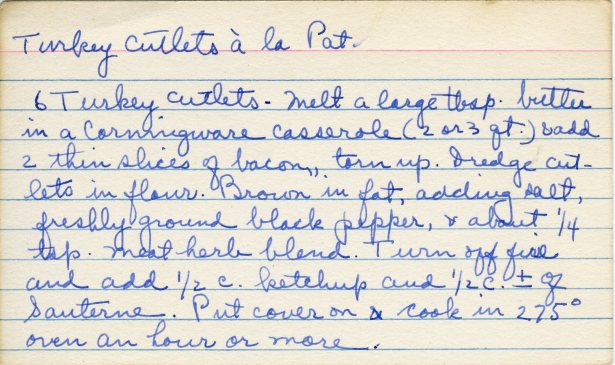 Turkey Cutlets à la Pat.
6 Turkey cutlets - Melt a large tbsp. butter
in a Corningware casserole (2 or 3 qt.) & add
2 thin slices of bacon, torn up. Dredge cut-
lets in flour. Brown in fat, adding salt,
freshly ground black pepper, & about 1/4
tsp. meat herb blend. Turn off fire
and add 1/2 c. ketchup and 1/2 c. ± of
Sauterne. Put cover on & cook in 275°
oven an hour or more.